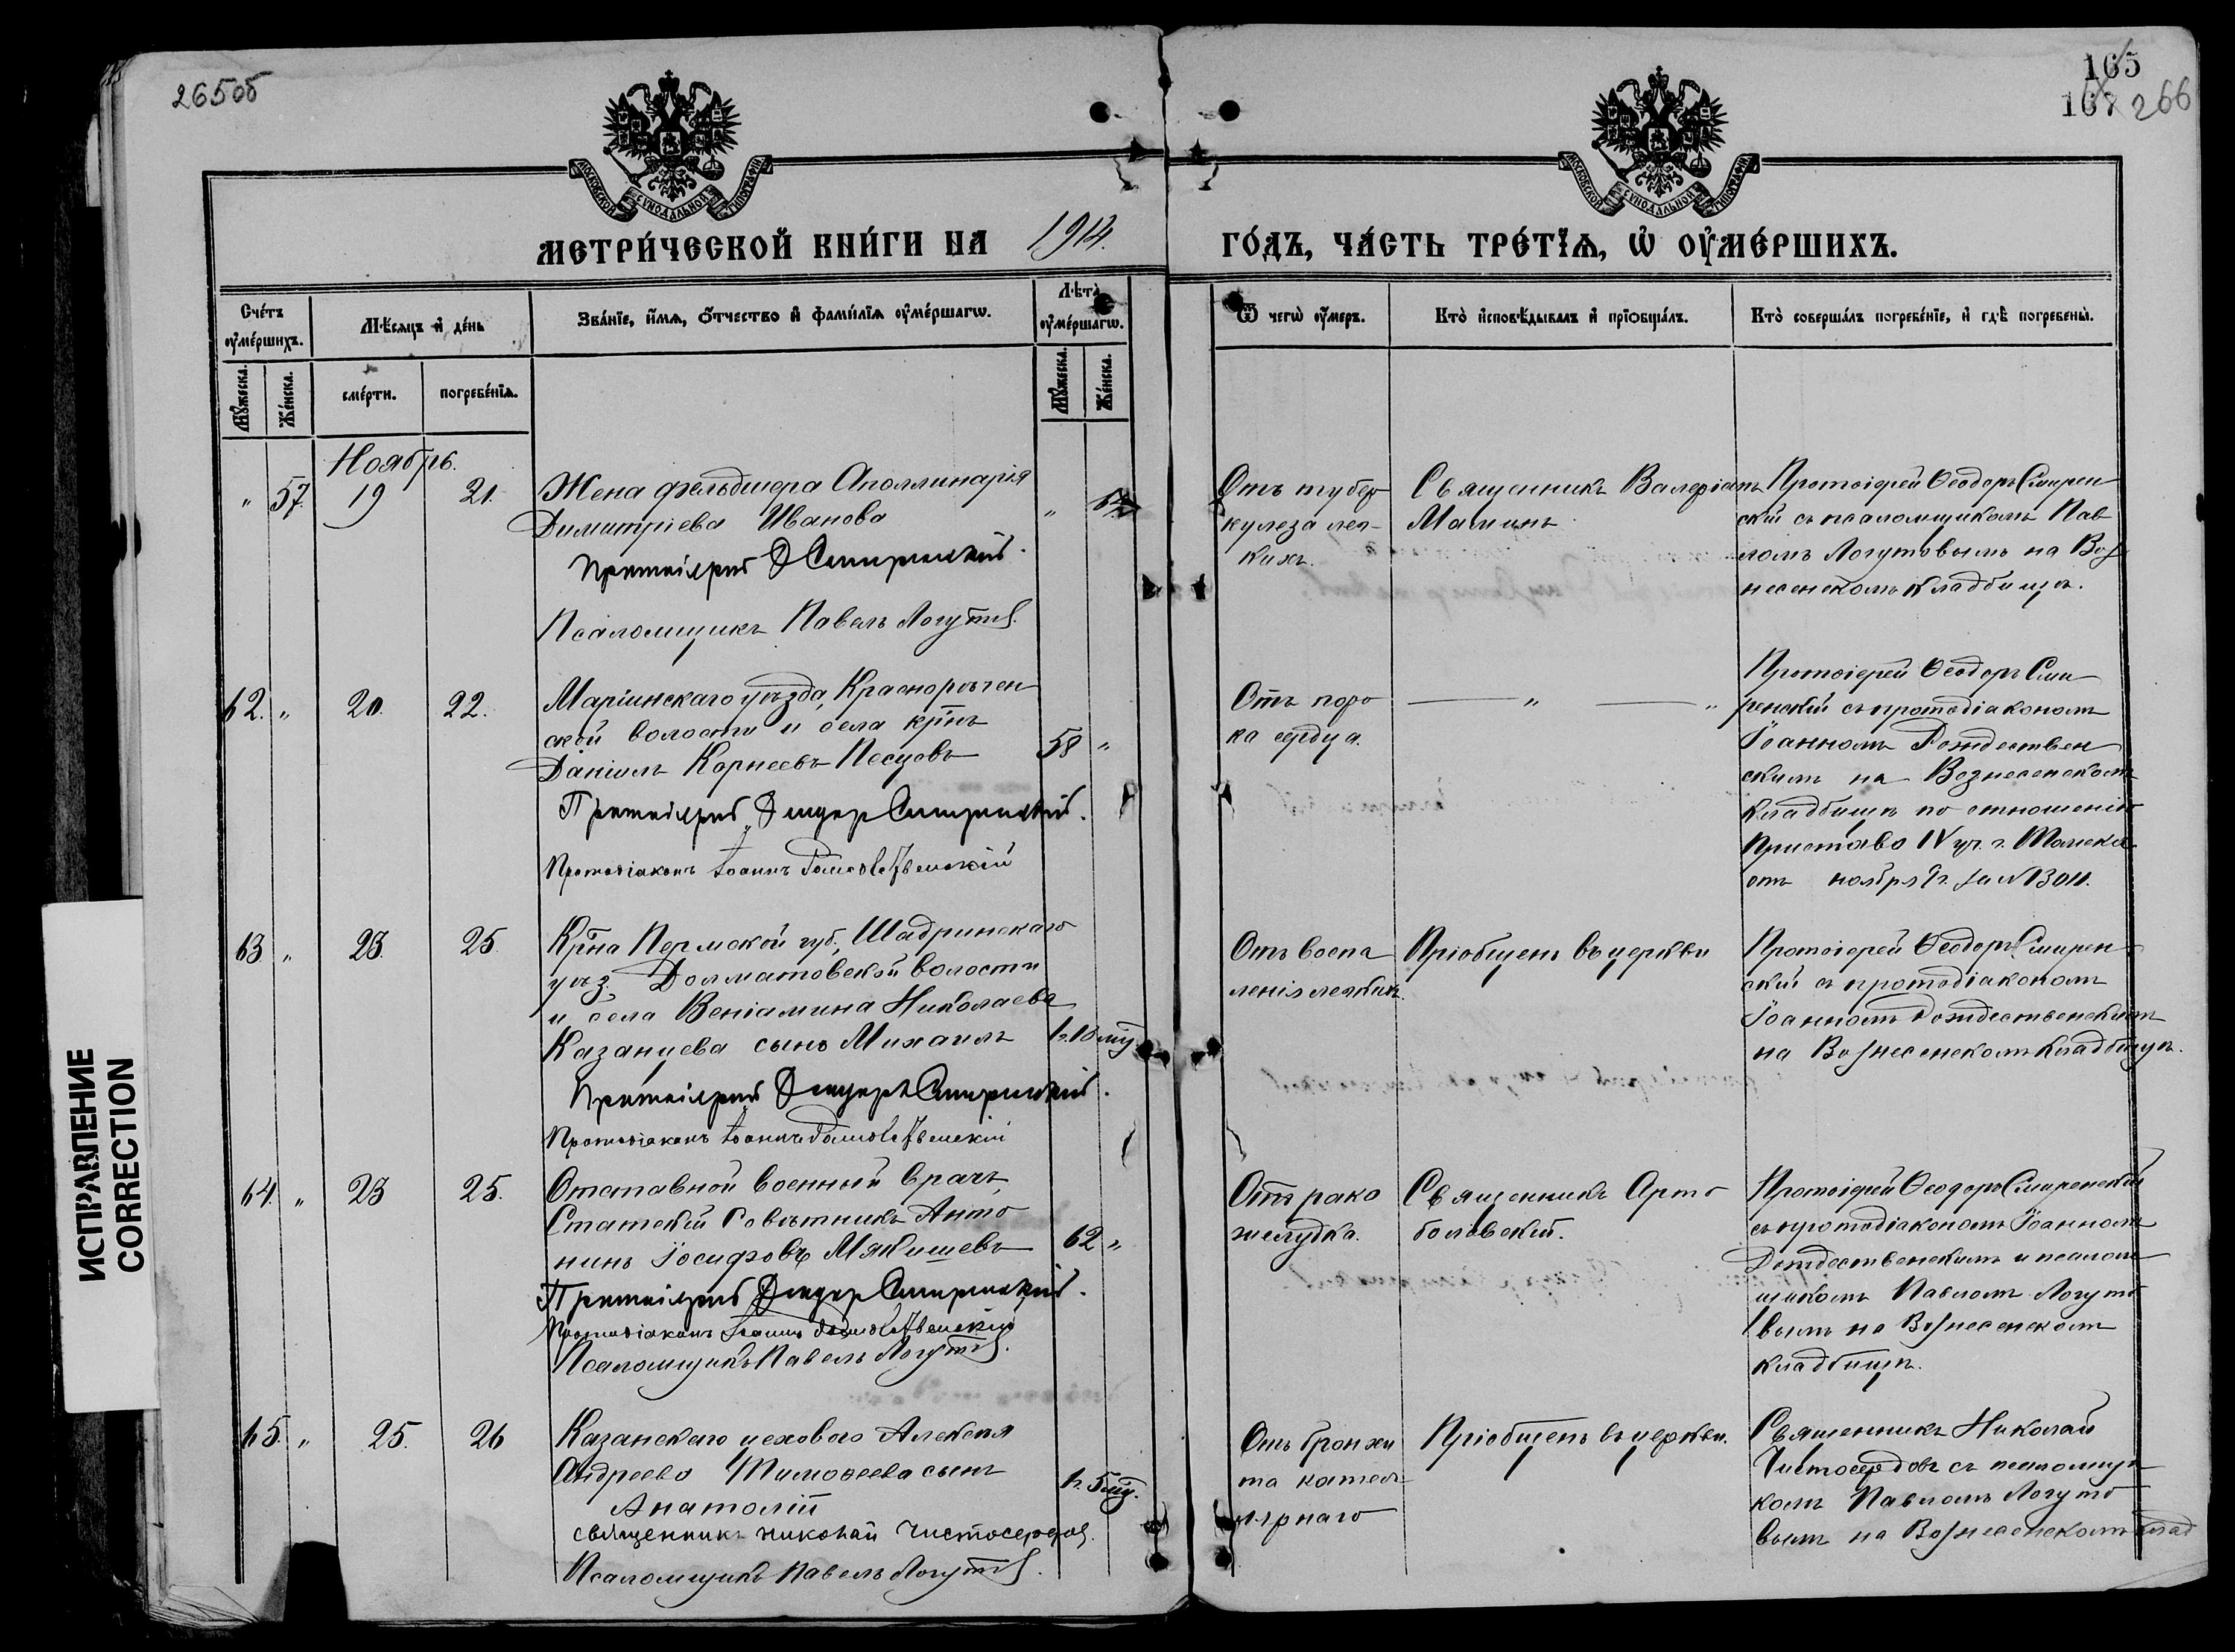 265об
165
167 266
МОСКОВСКОЙ СѴНОДАЛЬНОЙ ТИПОГРАФІИ
МОСКОВСКОЙ СѴНОДАЛЬНОЙ ТИПОГРАФІИ
МЕТРИ́ЧЕСКОЙ КНИ́ГИ НА 1914. ГО́ДЪ, ЧА́СТЬ ТРЕ́ТЇѦ, Ѡ҆ ОУ҆МЕ́РШИХЪ.
Сче́тъ оу҆ме́ршихъ.
Мѣ́сяцъ и҆ де́нь
Зва́нїе, и҆́мя, ѻ҆́тчество и҆ фами́лїя оу҆ме́ршагѡ.
Лѣ́та оу҆ме́ршагѡ.
Ѿ чегѡ̀ оу҆́меръ.
Кто̀ и҆сповѣ́дывалъ и҆ прїѡбща́лъ.
Кто̀ соверша́лъ погребе́нїе, и҆ гдѣ̀ погребены̀.
Мꙋ́жеска.
Же́нска.
сме́рти.
погребе́нїѧ.
Мꙋ́жеска.
Же́нска.
Ноябрь.
" 57. 19 21.
Жена фельдшера Аполлинарія
Димитріева Иванова
Протоіерей Ѳ Смиренскій.
Псаломщикъ Павелъ Логутов.
"
Отъ тубер
кулеза лег-
кихъ.
Священникъ Валеріанъ
Мамин
Протоіерей Ѳеодоръ Смирен
скій съ псаломщикомъ Пав
ломъ Логутовымъ на Воз
несенскомъ кладбищѣ.
62. " 20. 22.
Маріинскаго уѣзда, Краснорѣчен
ской волости и села кр-нъ
Даніилъ Корнеевъ Песцовъ
58 "
Протоіерей Ѳеодор Смиренскій.
Протодіаконъ Іоаннъ Рождественскій
Отъ поро
ка сердца.
" "
Протоіерей Ѳеодоръ Сми
ренскій съ протодіакономъ
Іоанномъ Рождествен
скимъ на Вознесенскомъ
кладбищѣ по отношенію
Пристава IV уч. г. Томска
отъ ноября
63 " 23. 25.
Кр-на Пермской губ., Шадринскаго
уѣз. Долматовской волости
и села Веніамина Николаева
Казанцева сынъ Михаилъ
1г. 10 мц
Протоіерей Ѳеодоръ Смиренскій.
Протодіаконъ Іоаннъ Рождественскій
Отъ воспа
ленія легкихъ.
Пріобщенъ въ церкви
Протоіерей Ѳеодоръ Смирен
скій съ протодіакономъ
Іоанномъ Рождественскимъ
на Вознесенскомъ кладбищѣ.
64. " 23 25.
Отставной военный врачъ,
Статскій Совѣтникъ Анто
нинъ Іосифовъ Мякишевъ
62 "
Протоіерей Ѳеодор Смиренскій.
Протодіаконъ Іоаннъ Рождественскій
Псаломщикъ Павелъ Логутов.
Отъ рака
желудка.
Священникъ Арто
болевскій.
Протоіерей Ѳеодоръ Смиренскій
съ протодіакономъ Іоанномъ
Рождественскимъ и псалом
щикомъ Павломъ Логуто
вымъ на Вознесенскомъ
кладбищѣ.
65. " 25. 26
Казанскаго цехового Алексѣя
Андреева Тимоѳеева сынъ
Анатолій
1г. 5 мц.
священникъ Николай Чистосердов.
Псаломщикъ Павелъ Логутов.
Отъ бронхи
та катар
ральнаго
Пріобщенъ въ церкви.
Священникъ Николай
Чистосердовъ съ псаломщи
комъ Павломъ Логуто
вымъ на Вознесенскомъ клад
ИСПРАВЛЕНИЕ
CORRECTION